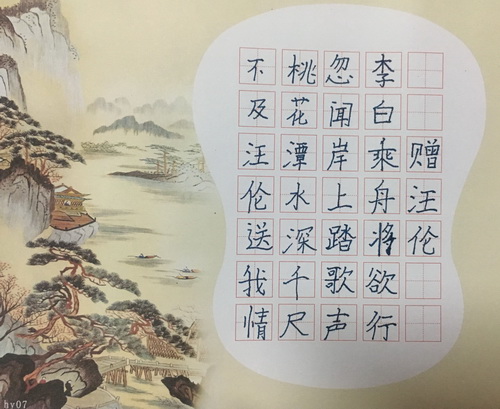 赠汪伦
李白乘舟将欲行
忽闻岸上踏歌声
桃花潭水深千尺
不及汪伦送我情
hy07